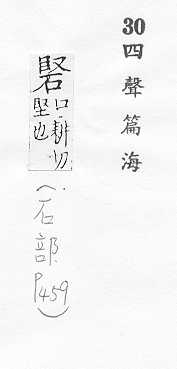 30四聲篇海
硻
口耕切
堅也
(石部 P459)